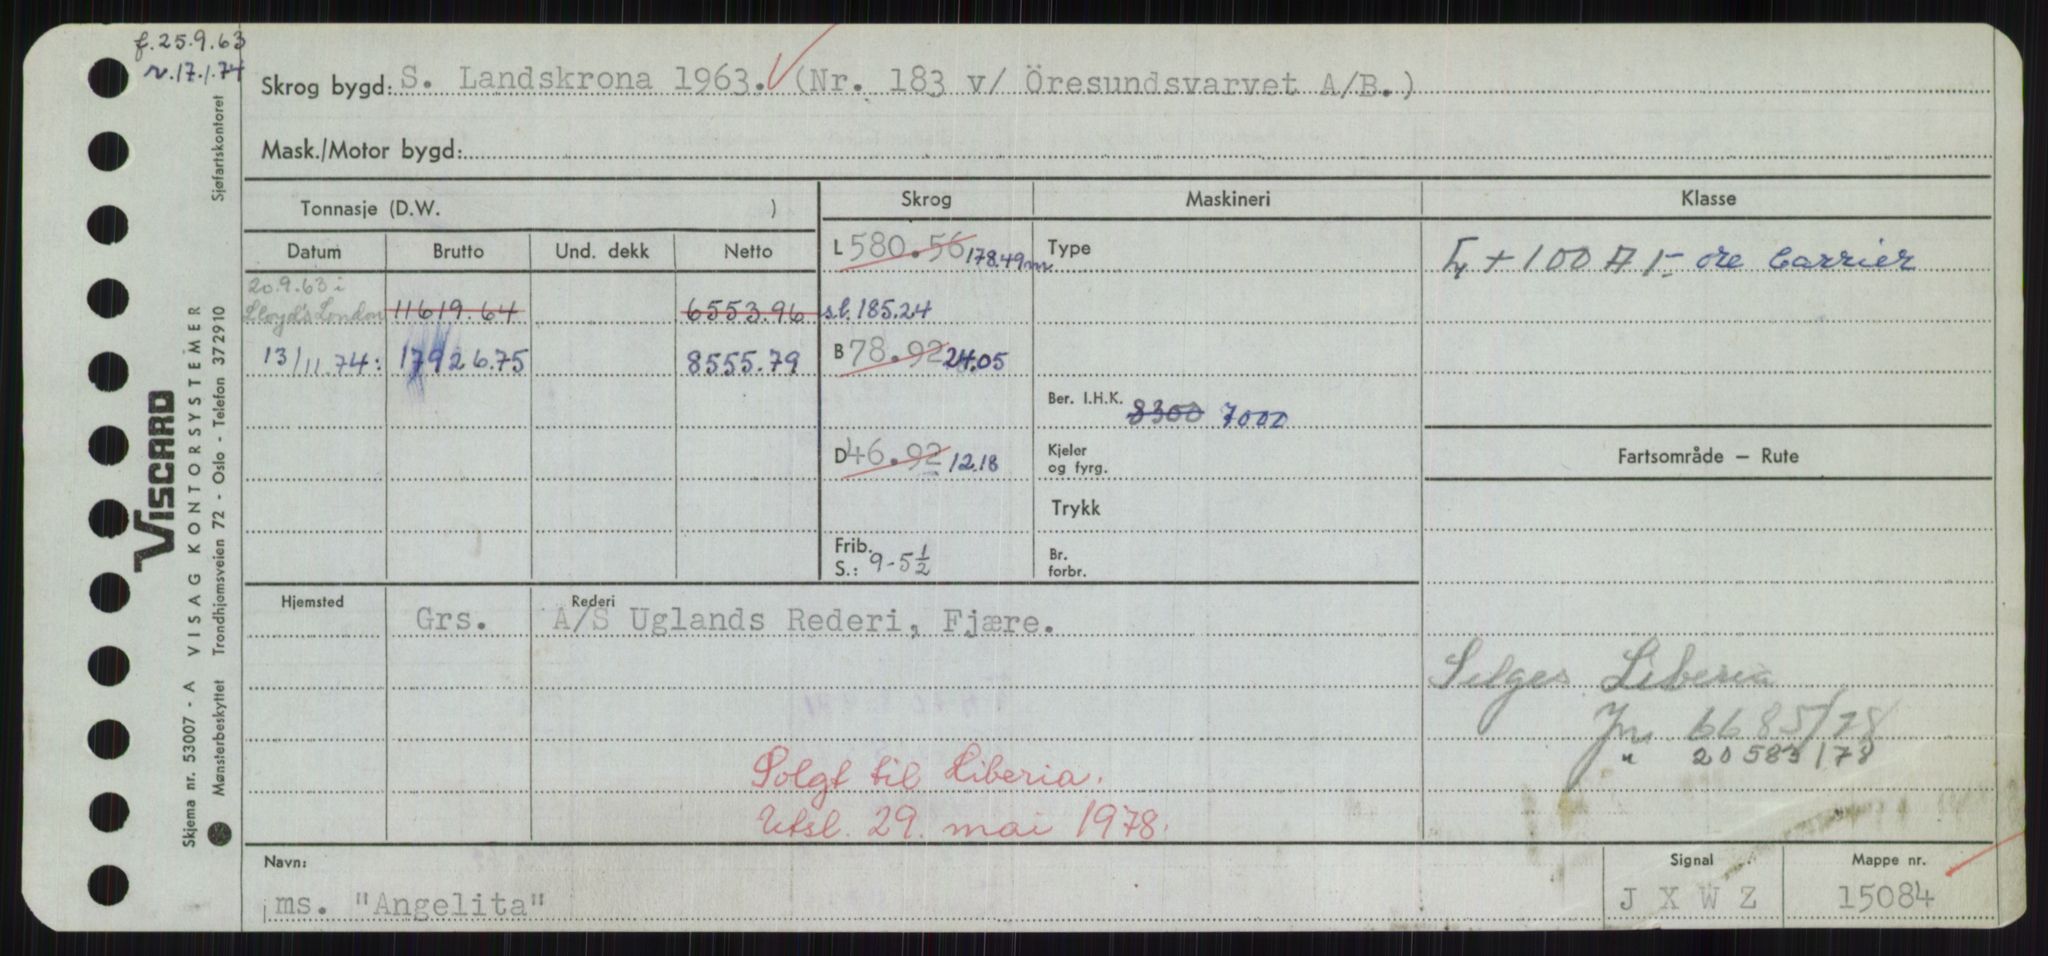 f. 25.9.63
r. 17.1.74
Skrog bygd: S. Landskrona 1963. (Nr. 183 v/ Öresundsvarvet A/B.)
Mask./Motor bygd:
Tonnasje (D.W. )
Skrog
Maskineri
Klasse
Datum
Brutto
Und. dekk
Netto
L 580.56 178.49m
Type
+ 100 A 1 - ore Carrier
20.9.63 i
Lloyd's London
11619.64
6553.96
s.l. 185.24
13/11.74:
17926.75
8555.79
B 78.92 24.05
Ber. I.H.K. 8300 7000
D 46.92 12.18
Kjeler
og fyrg.
Fartsområde – Rute
Trykk
Frib.
S.: 9-5½
Br.
forbr.
Hjemsted
Rederi
Grs.
A/S Uglands Rederi, Fjære.
Selges Liberia
Jnr 6685/78
" 20583/78
Solgt til Liberia.
Utsl. 29. mai 1978.
Navn:
ms. "Angelita"
Signal
J X W Z
Mappe nr.
15084
VISCARD
Skjema nr. 53007 - A VISAG KONTORSYSTEMER
Mønsterbeskyttet Trondhjemsveien 72 - Oslo - Telefon 372910 Sjøfartskontoret